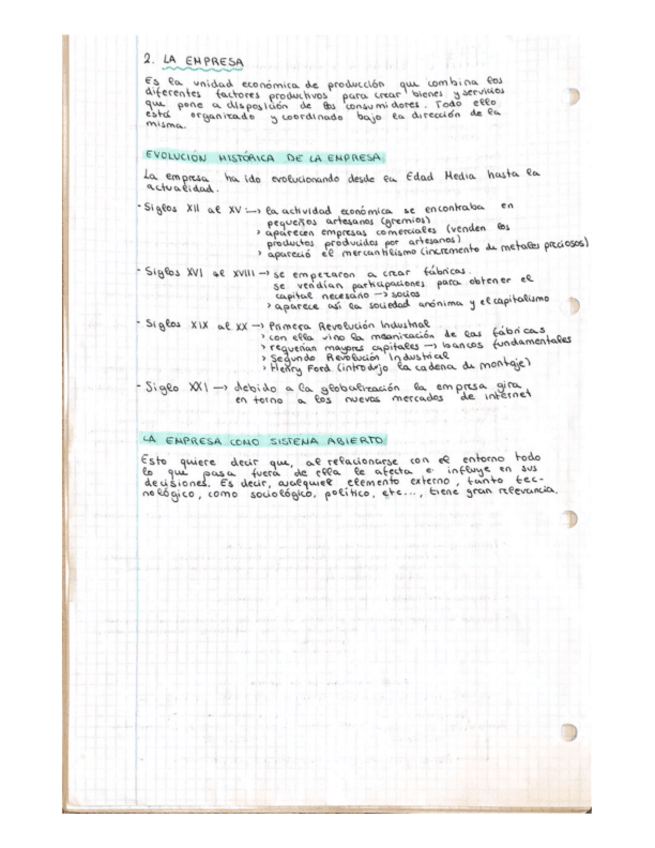 2. LA EMPRESA
Es la unidad económica de producción que combina los
diferentes factores productivos para crear bienes y servicios
que pone a disposición de los consumidores. Todo ello
está organizado y coordinado bajo la dirección de la
misma.
EVOLUCIÓN HISTÓRICA DE LA EMPRESA
La empresa ha ido evolucionando desde la Edad Media hasta la
actualidad.
- Siglos XII al XV → la actividad económica se encontraba en
pequeños artesanos (gremios)
> aparecen empresas comerciales (venden los
productos producidos por artesanos)
> apareció el mercantilismo (incremento de metales preciosos)
- Siglos XVI al XVIII → se empezaron a crear fábricas.
se vendían participaciones para obtener el
capital necesario → socios
> aparece así la sociedad anónima y el capitalismo
- Siglos XIX al XX → Primera Revolución Industrial
> con ella vino la mecanización de las fábricas
> requerían mayores capitales → bancos fundamentales
> Segunda Revolución Industrial
> Henry Ford (introdujo la cadena de montaje)
- Siglo XXI → debido a la globalización la empresa gira
en torno a los nuevos mercados de internet
LA EMPRESA COMO SISTEMA ABIERTO
Esto quiere decir que, al relacionarse con el entorno todo
lo que pasa fuera de ella le afecta e influye en sus
decisiones. Es decir, cualquier elemento externo, tanto tec-
nológico, como sociológico, político, etc..., tiene gran relevancia.